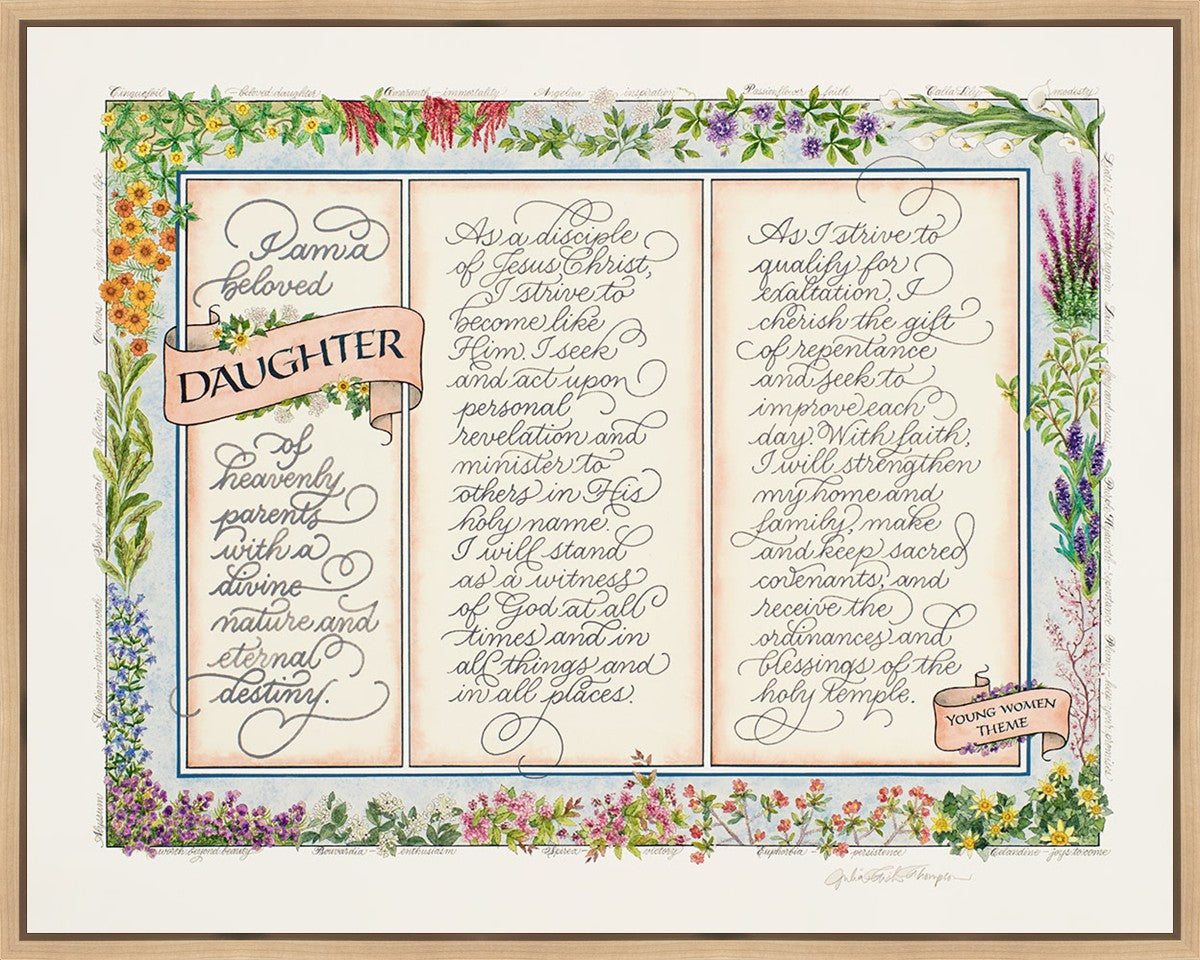 Cinquefoil — beloved daughter
Amaranth — immortality
Angelica — inspiration
Passionflower — faith
Calla Lily — modesty
I am a
beloved
DAUGHTER
of
heavenly
parents
with a
divine
nature and
eternal
destiny.
As a disciple
of Jesus Christ,
I strive to
become like
Him. I seek
and act upon
personal
revelation and
minister to
others in His
holy name.
I will stand
as a witness
of God at all
times and in
all things and
in all places.
As I strive to
qualify for
exaltation, I
cherish the gift
of repentance
and seek to
improve each
day. With faith,
I will strengthen
my home and
family, make
and keep sacred
covenants, and
receive the
ordinances and
blessings of the
holy temple.
YOUNG WOMEN
THEME
Alyssum — worth beyond beauty
Bouvardia — enthusiasm
Spirea — victory
Euphorbia — persistence
Celandine — joys to come